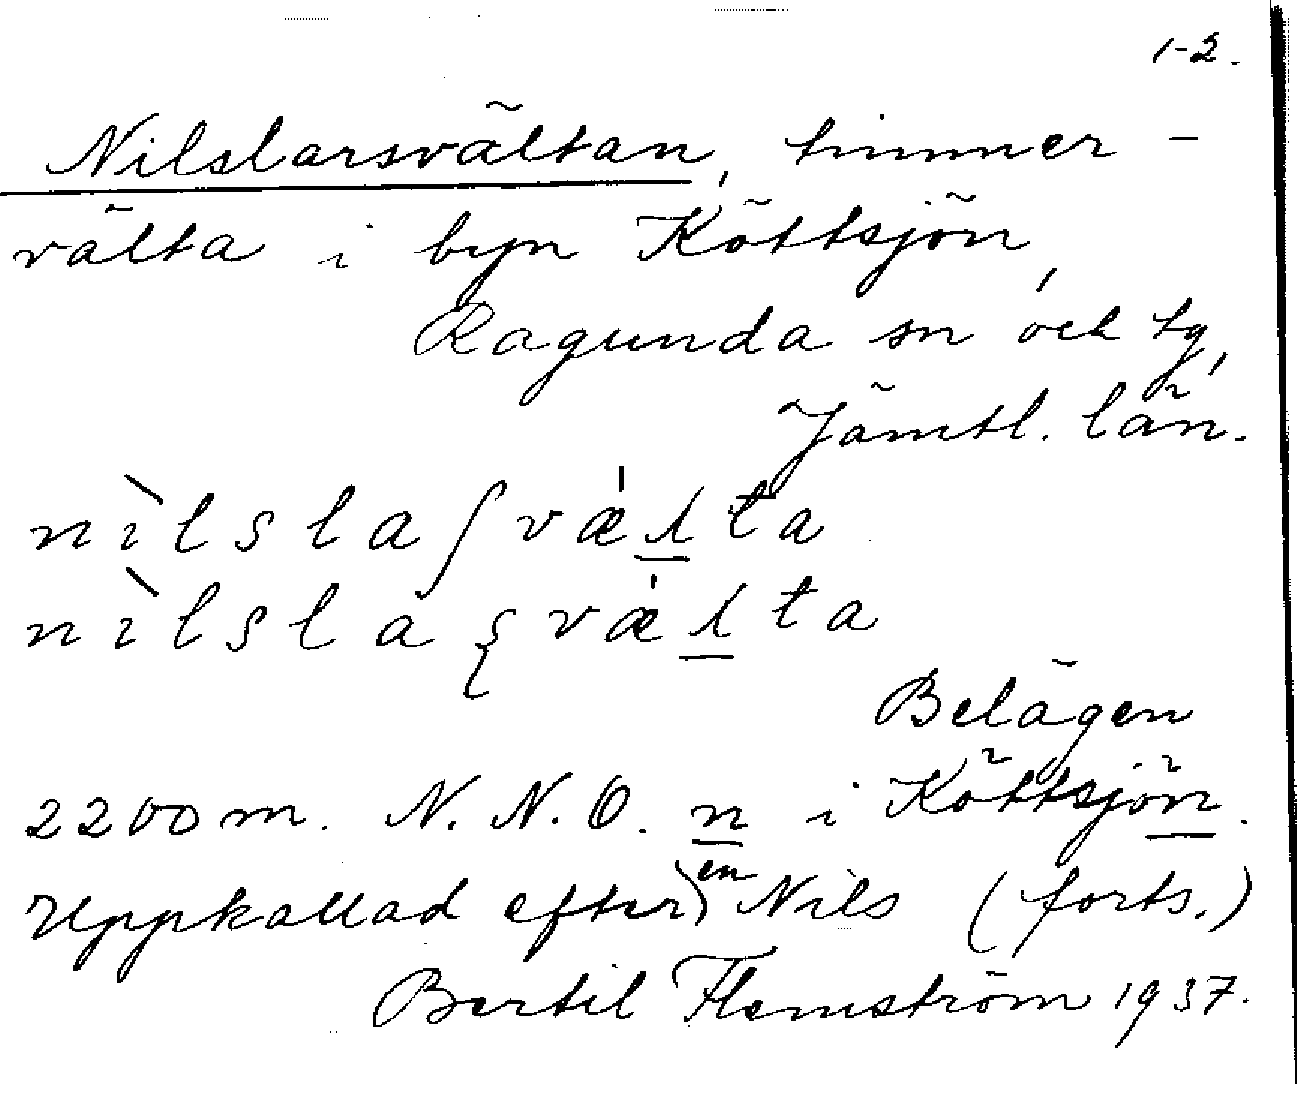 1-2.
Nilslarsvältan, timmer-
välta i byn Köttsjön,
Ragunda sn och tg,
Jämtl. län.
nìlslaʃvæ̍ʌta
nìlslaꞩvæ̍ʌta
Belägen
2200 m. N.N.O. n i Köttsjön.
Uppkallad efter en Nils (forts.)
Bertil Flemström 1937.